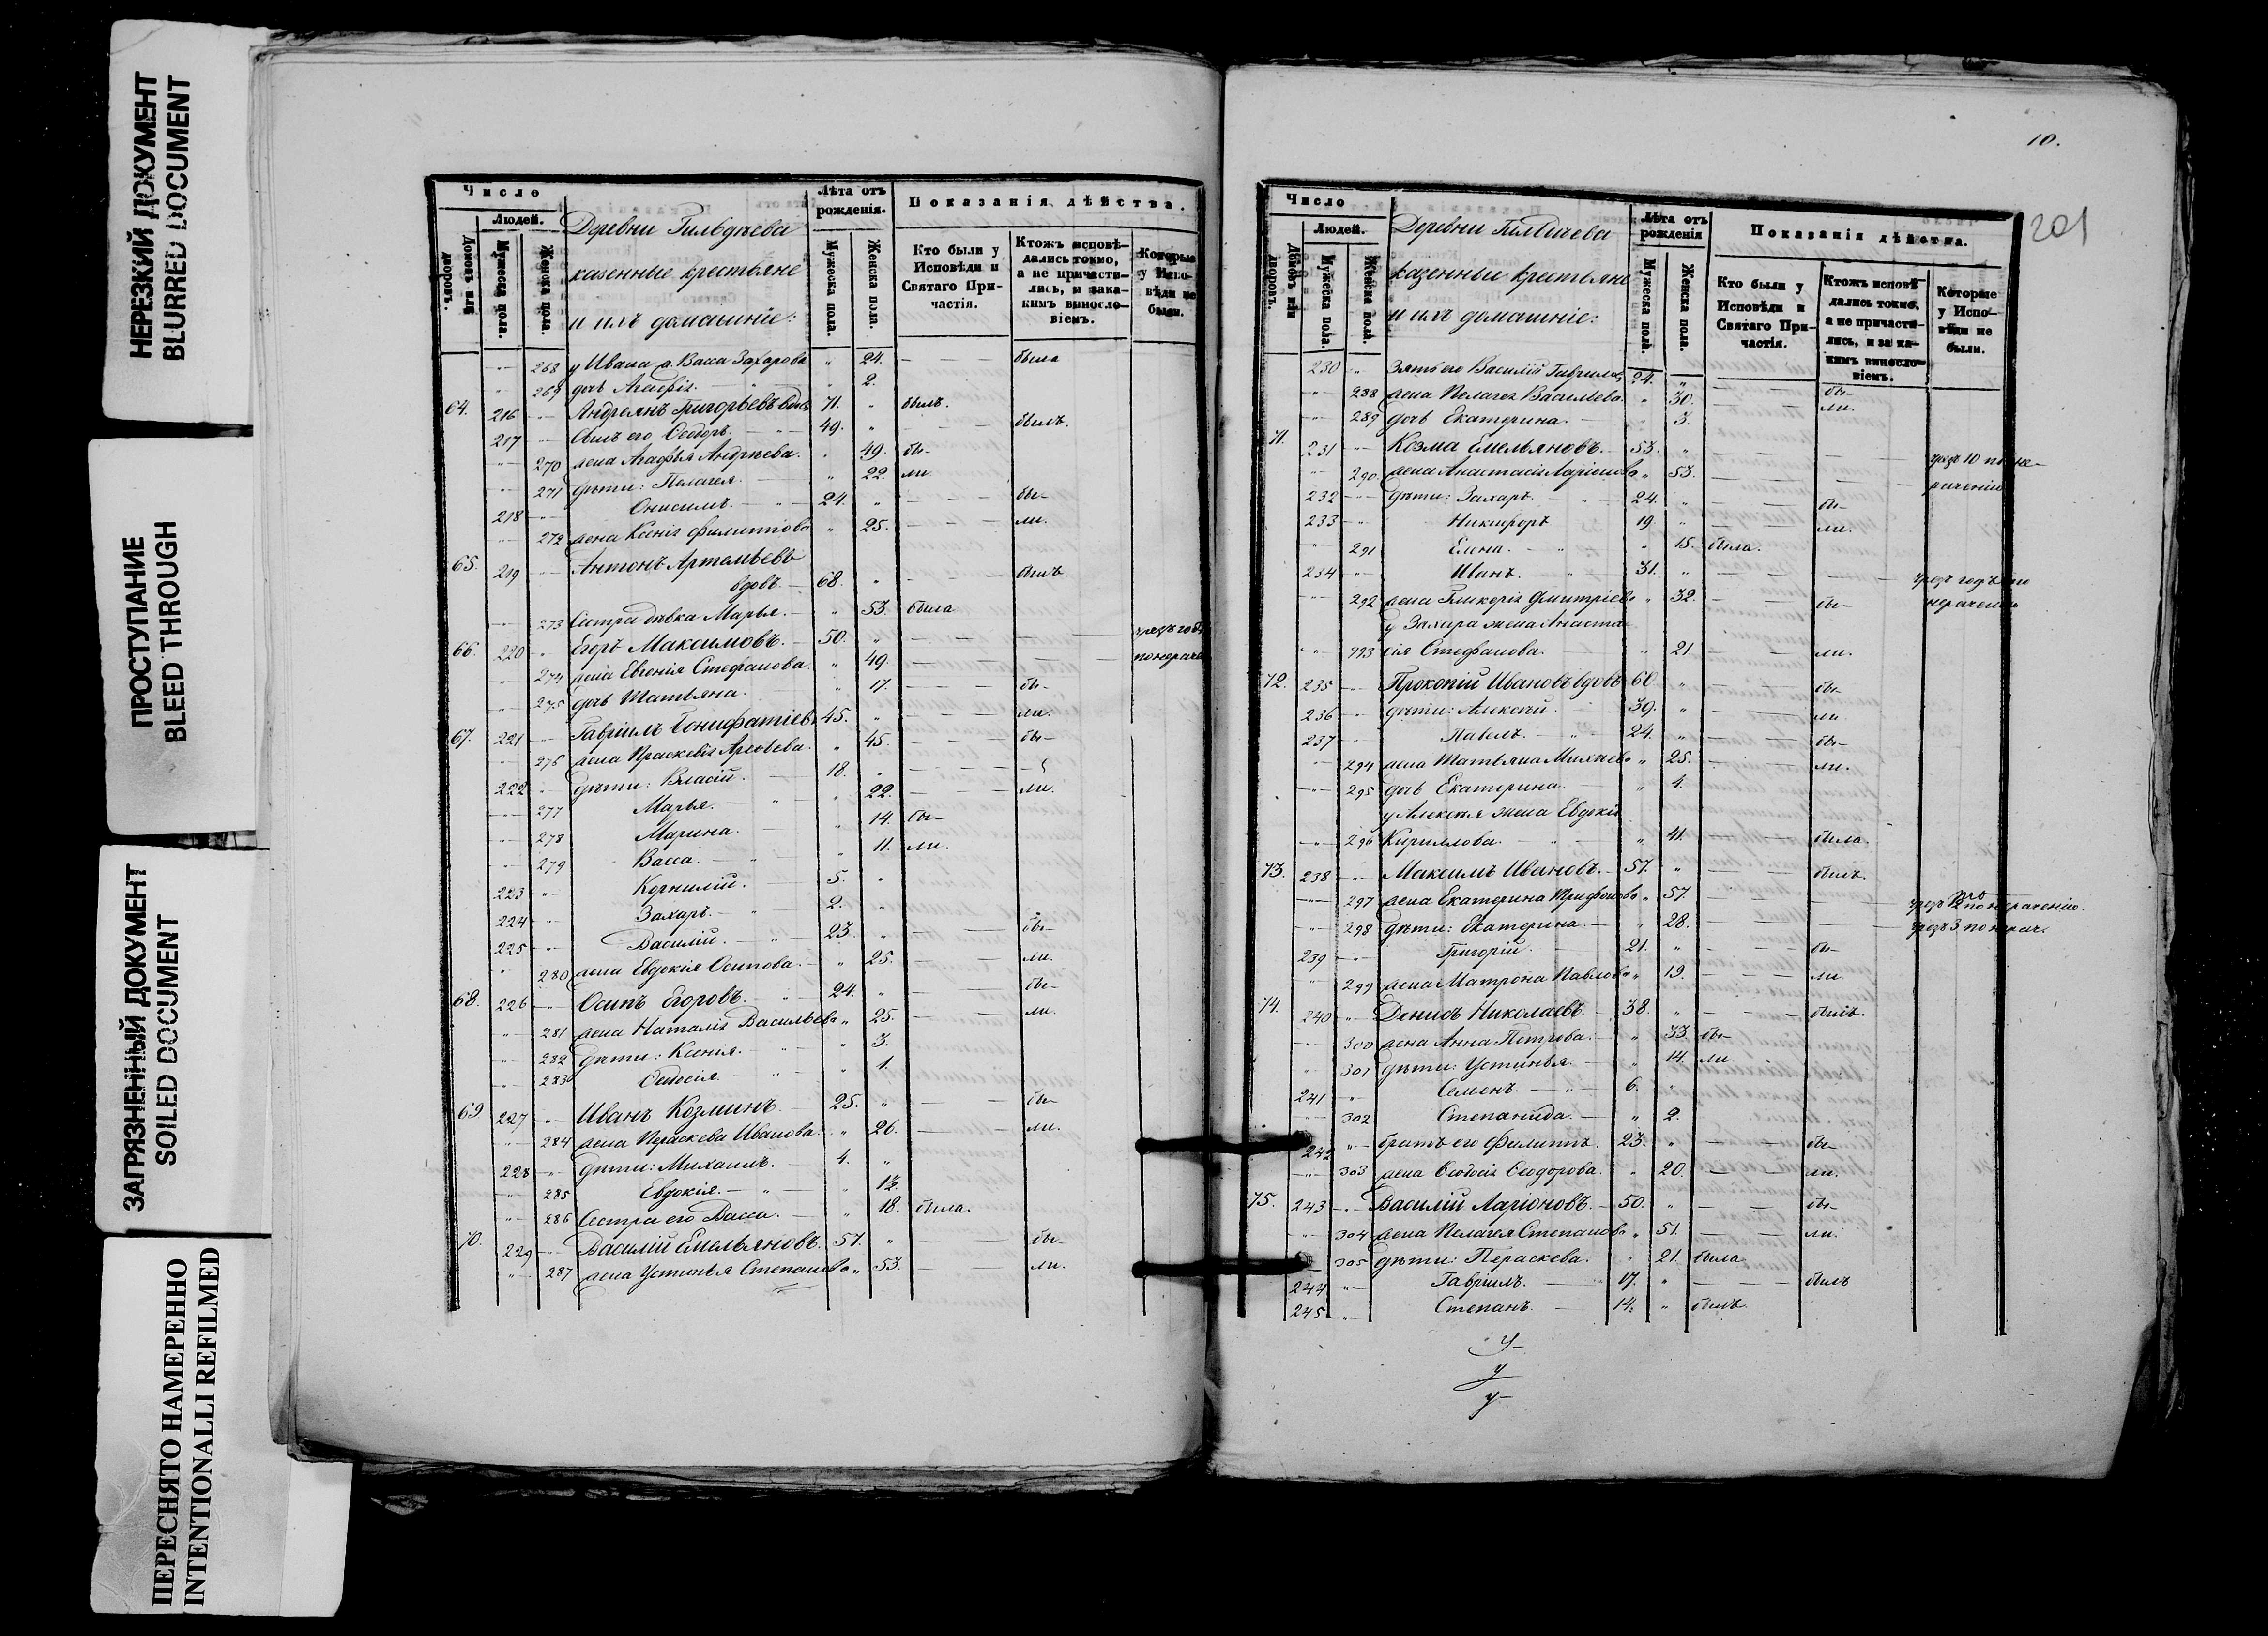 НЕРЕЗКИЙ ДОКУМЕНТ
BLURRED DOCUMENT
ПРОСТУПАНИЕ
BLEED THROUGH
ЗАГРЯЗНЕННЫЙ ДОКУМЕНТ
SOILED DOCUMENT
ПЕРЕСНЯТО НАМЕРЕННО
INTENTIONALLI REFILMED
Число
Людей.
Домовъ или дворовъ.
Мужеска пола.
Женска пола.
Деревни Гильдѣева
казенные крестьяне
и ихъ домашніе:
Лѣта отъ рожденія.
Мужеска пола.
Женска пола.
Показанія дѣйства.
Кто были у Исповѣди и Святаго Причастія.
Ктожъ исповѣдались токмо, а не причастились, и закакимъ винословіемъ.
Которые у Исповѣди не были.
" 268 у Ивана ж. Васса Захарова " 24. — — была
" 269 дочь Агафія. " 2.
64. 216 " Андреянъ Григорьевъ вдовъ 71. " былъ.
217 " Сынъ его Ѳеодоръ. 49. " — — былъ.
" 270 жена Агафья Андрѣева. " 49. бы-
" 271 дѣти: Пелагея. " 22. ли.
218 " Онисимъ. 24. " — — бы-
" 272 жена Ксенія Филиппова " 25. — — ли.
65. 219 " Антонъ Артемьевъ
вдовъ. 68. " — — былъ
" 273 Сестра дѣвка Марья. " 53. была
66. 220 " Егоръ Максимовъ. 50. " — — чрезъ годъ
" 274 жена Евгенія Стефанова. " 49. — — по нерачен
" 275 дочь Татьяна. " 17. — — бы-
67. 221 " Гавріилъ Бонифатіевъ 45. " — — ли.
" 276 жена Праскевія Арсеньева. " 45. — — бы-
222 " дѣти: Власій. 18. " — —
" 277 Марья. " 22. — ли.
" 278 Марина. " 14. бы-
" 279 Васса. " 11. ли.
223 " Корнилій. 5. "
224 " Захаръ. 2. "
225 " Василій. 23. " — — бы-
" 280 жена Евдокія Осипова. " 25. — — ли.
68. 226 " Осипъ Егоровъ. 24. " — бы-
" 281 жена Наталія Васильева " 25. — — ли.
" 282 дѣти: Ксенія. " 3.
" 283 Ѳедосія. " 1.
69 227 " Иванъ Козминъ. 25. " — — бы-
" 284 жена Праскева Иванова. " 26. — — ли.
228 " дѣти: Михаилъ. 4. "
" 285 Евдокія. " 1½
" 286 Сестра его Васса. " 18. была.
70. 229 " Василій Емельяновъ. 57. " — — бы-
" 287 жена Устинья Степанова " 53. — — ли.
10.
201
Число
Людей.
Домовъ или дворовъ.
Мужеска пола.
Женска пола.
Деревни Гилдѣева
казенные крестьяне
и ихъ домашніе:
Лѣта отъ рожденія
Мужеска пола.
Женска пола.
Показанія дѣйства.
Кто были у Исповѣди и Святаго Причастія.
Ктожъ исповѣдались токмо, а не причастились, и за какимъ винословіемъ.
Которые у Исповѣди не были.
230 " Зять его Василій Гавриловъ 24. " — — бы-
" 288 жена Пелагея Васильева. " 30. — — ли.
" 289 дочь Екатерина. " 3.
71. 231 " Козма Емельяновъ. 53. " — — чрезъ 10 по не-
" 290 жена Анастасія Ларіонова " 53. — — раченію
232 " дѣти: Захаръ. 24. " — — бы-
233 " Никифоръ 19. " — — ли.
" 291 Елена. " 15. была.
234 " Иванъ. 31. " — — чрезъ годъ по
" 292 жена Гликерія Дмитріева " 32. — — бы- нераченію
у Захара жена Анаста-
" 293 сія Стефанова. " 21. — — ли.
72. 235 " Прокопій Ивановъ вдовъ 60. " — — бы-
236 " дѣти: Алексѣй. 39. " — — ли
237 " Павелъ. 24. " — — бы-
" 294 жена Татьяна Михеева " 25. — — ли.
" 295 дочь Екатерина. " 4.
у Алексѣя жена Евдокія
" 296 Кириллова. " 41. — — была.
73. 238 " Максимъ Ивановъ. 57. " — — былъ.
" 297 жена Екатерина Трифонова " 57. — — чрезъ 2 по нераченію.
" 298 дѣти: Екатерина. " 28. — — чрезъ 3 по нерач.
239 " Григорій. 21. " — — бы-
" 299 жена Матрона Павлова " 19. — — ли.
74. 240 " Денисъ Николаевъ. 38. " — — былъ.
" 300 жена Анна Петрова. " 33 бы-
" 301 дѣти: Устинья " 14. ли
241 " Семенъ. 6. "
" 302 Степанида. " 2.
242 " братъ его Филиппъ. 23. " — — бы-
" 303 жена Ѳедосія Ѳеодорова. " 20. — — ли.
75. 243 " Василій Ларіоновъ. 50. " — — бы-
" 304 жена Пелагея Степанова " 51. — — ли.
" 305 дѣти: Параскева. " 21. была
244 " Гавріилъ. 17. " — — былъ
245 " Степанъ. 14. " былъ.